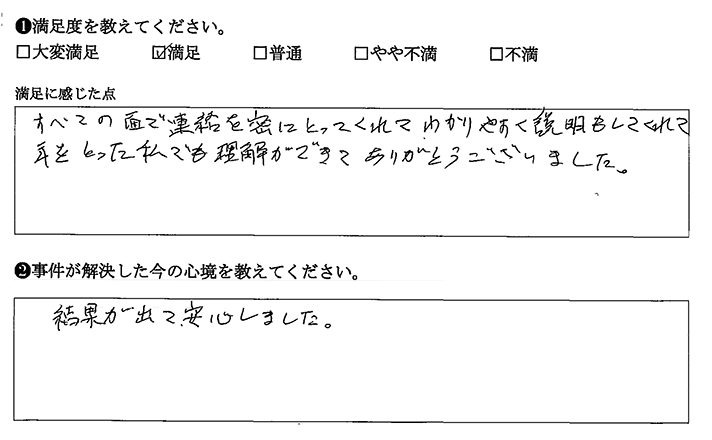 ❶満足度を教えてください。
□大変満足 ☑満足 □普通 □やや不満 □不満
満足に感じた点
すべての面で連絡を密にとってくれて わかりやすく説明もしてくれて
年をとった私でも理解ができて ありがとうございました。
❷事件が解決した今の心境を教えてください。
結果が出て、安心しました。